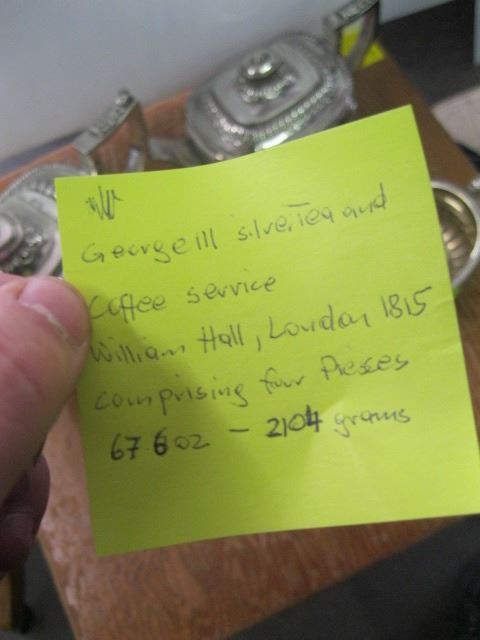 George III silver Tea and
Coffee service
William Hall, London 1815
comprising four Pieces
67.6oz - 2104 grams